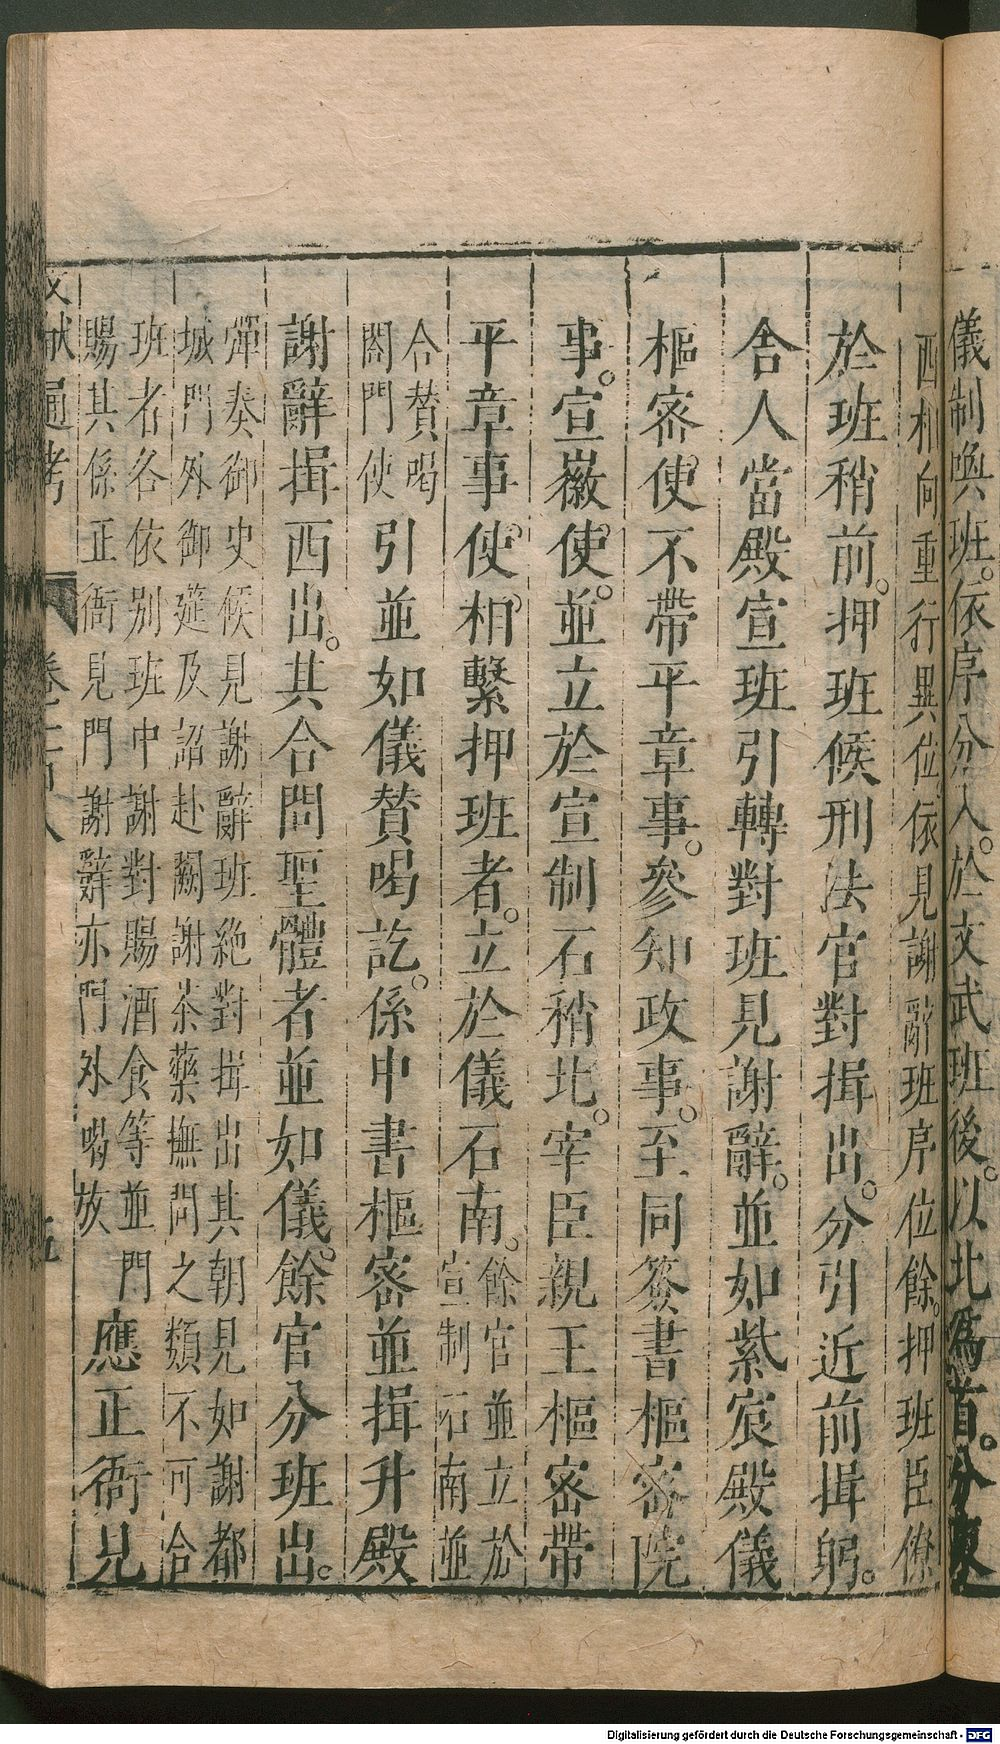 儀制喚班。依序分入。於文武班後。以北爲首。分東
西相向重行異位依見謝辭班序位餘。押班臣僚
於班稍前。押班候刑法官對揖出。分引近前揖躬。
舍人當殿宣班引轉對班見謝辭。並如紫宸殿儀
樞密使不帶平章事。參知政事。至同簽書樞密院
事。宣徽使。並立於宣制石稍北。宰臣親王樞密帶
平章事使。相繫押班者。立於儀石南。餘官並立於
宣制石南並
合贊喝
閤門使引並如儀贊喝訖。係中書樞密並揖升殿
謝辭揖西出。其合問聖體者並如儀。餘官分班出。
彈奏御史候見謝辭班絶對揖出其朝見如謝都
城門外御筵及詔赴闕謝茶藥撫問之類不可合
班者各依別班中謝對賜酒食等並門
賜其係正衙見門謝辭亦門外喝放
應正衙見
文獻通考
Digitalisierung gefördert durch die Deutsche Forschungsgemeinschaft - DFG